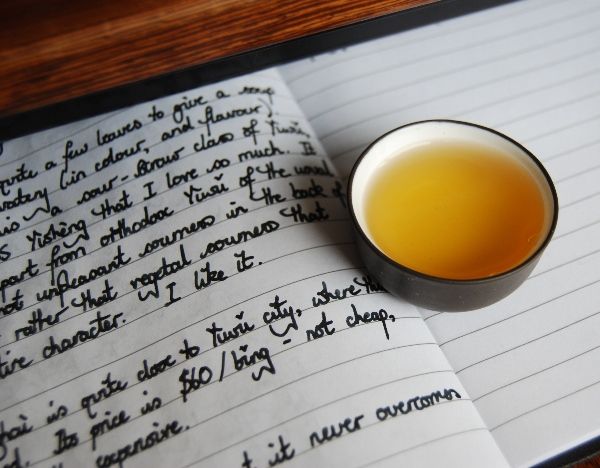 quite a few leaves to give a soup
(in colour, and flavour).
is a sour-straw class of Yiwu,
Yisheng that I love so much. It
part from orthodox Yiwu of the usual
not unpleasant sourness in the back of
rather that vegetal sourness that
tive character. I like it.
is quite close to Yiwu city, where
Its price is $60/bing - not cheap,
expensive.
t it never overcomes